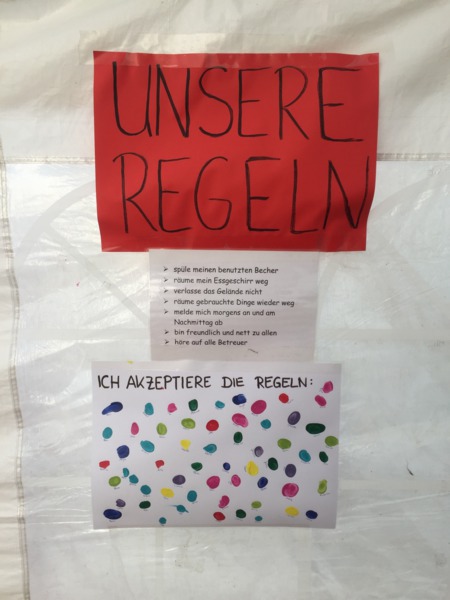 UNSERE
REGELN
➢ spüle meinen benutzten Becher
➢ räume mein Essgeschirr weg
➢ verlasse das Gelände nicht
➢ räume gebrauchte Dinge wieder weg
➢ melde mich morgens an und am
Nachmittag ab
➢ bin freundlich und nett zu allen
➢ höre auf alle Betreuer
ICH AKZEPTIERE DIE REGELN: